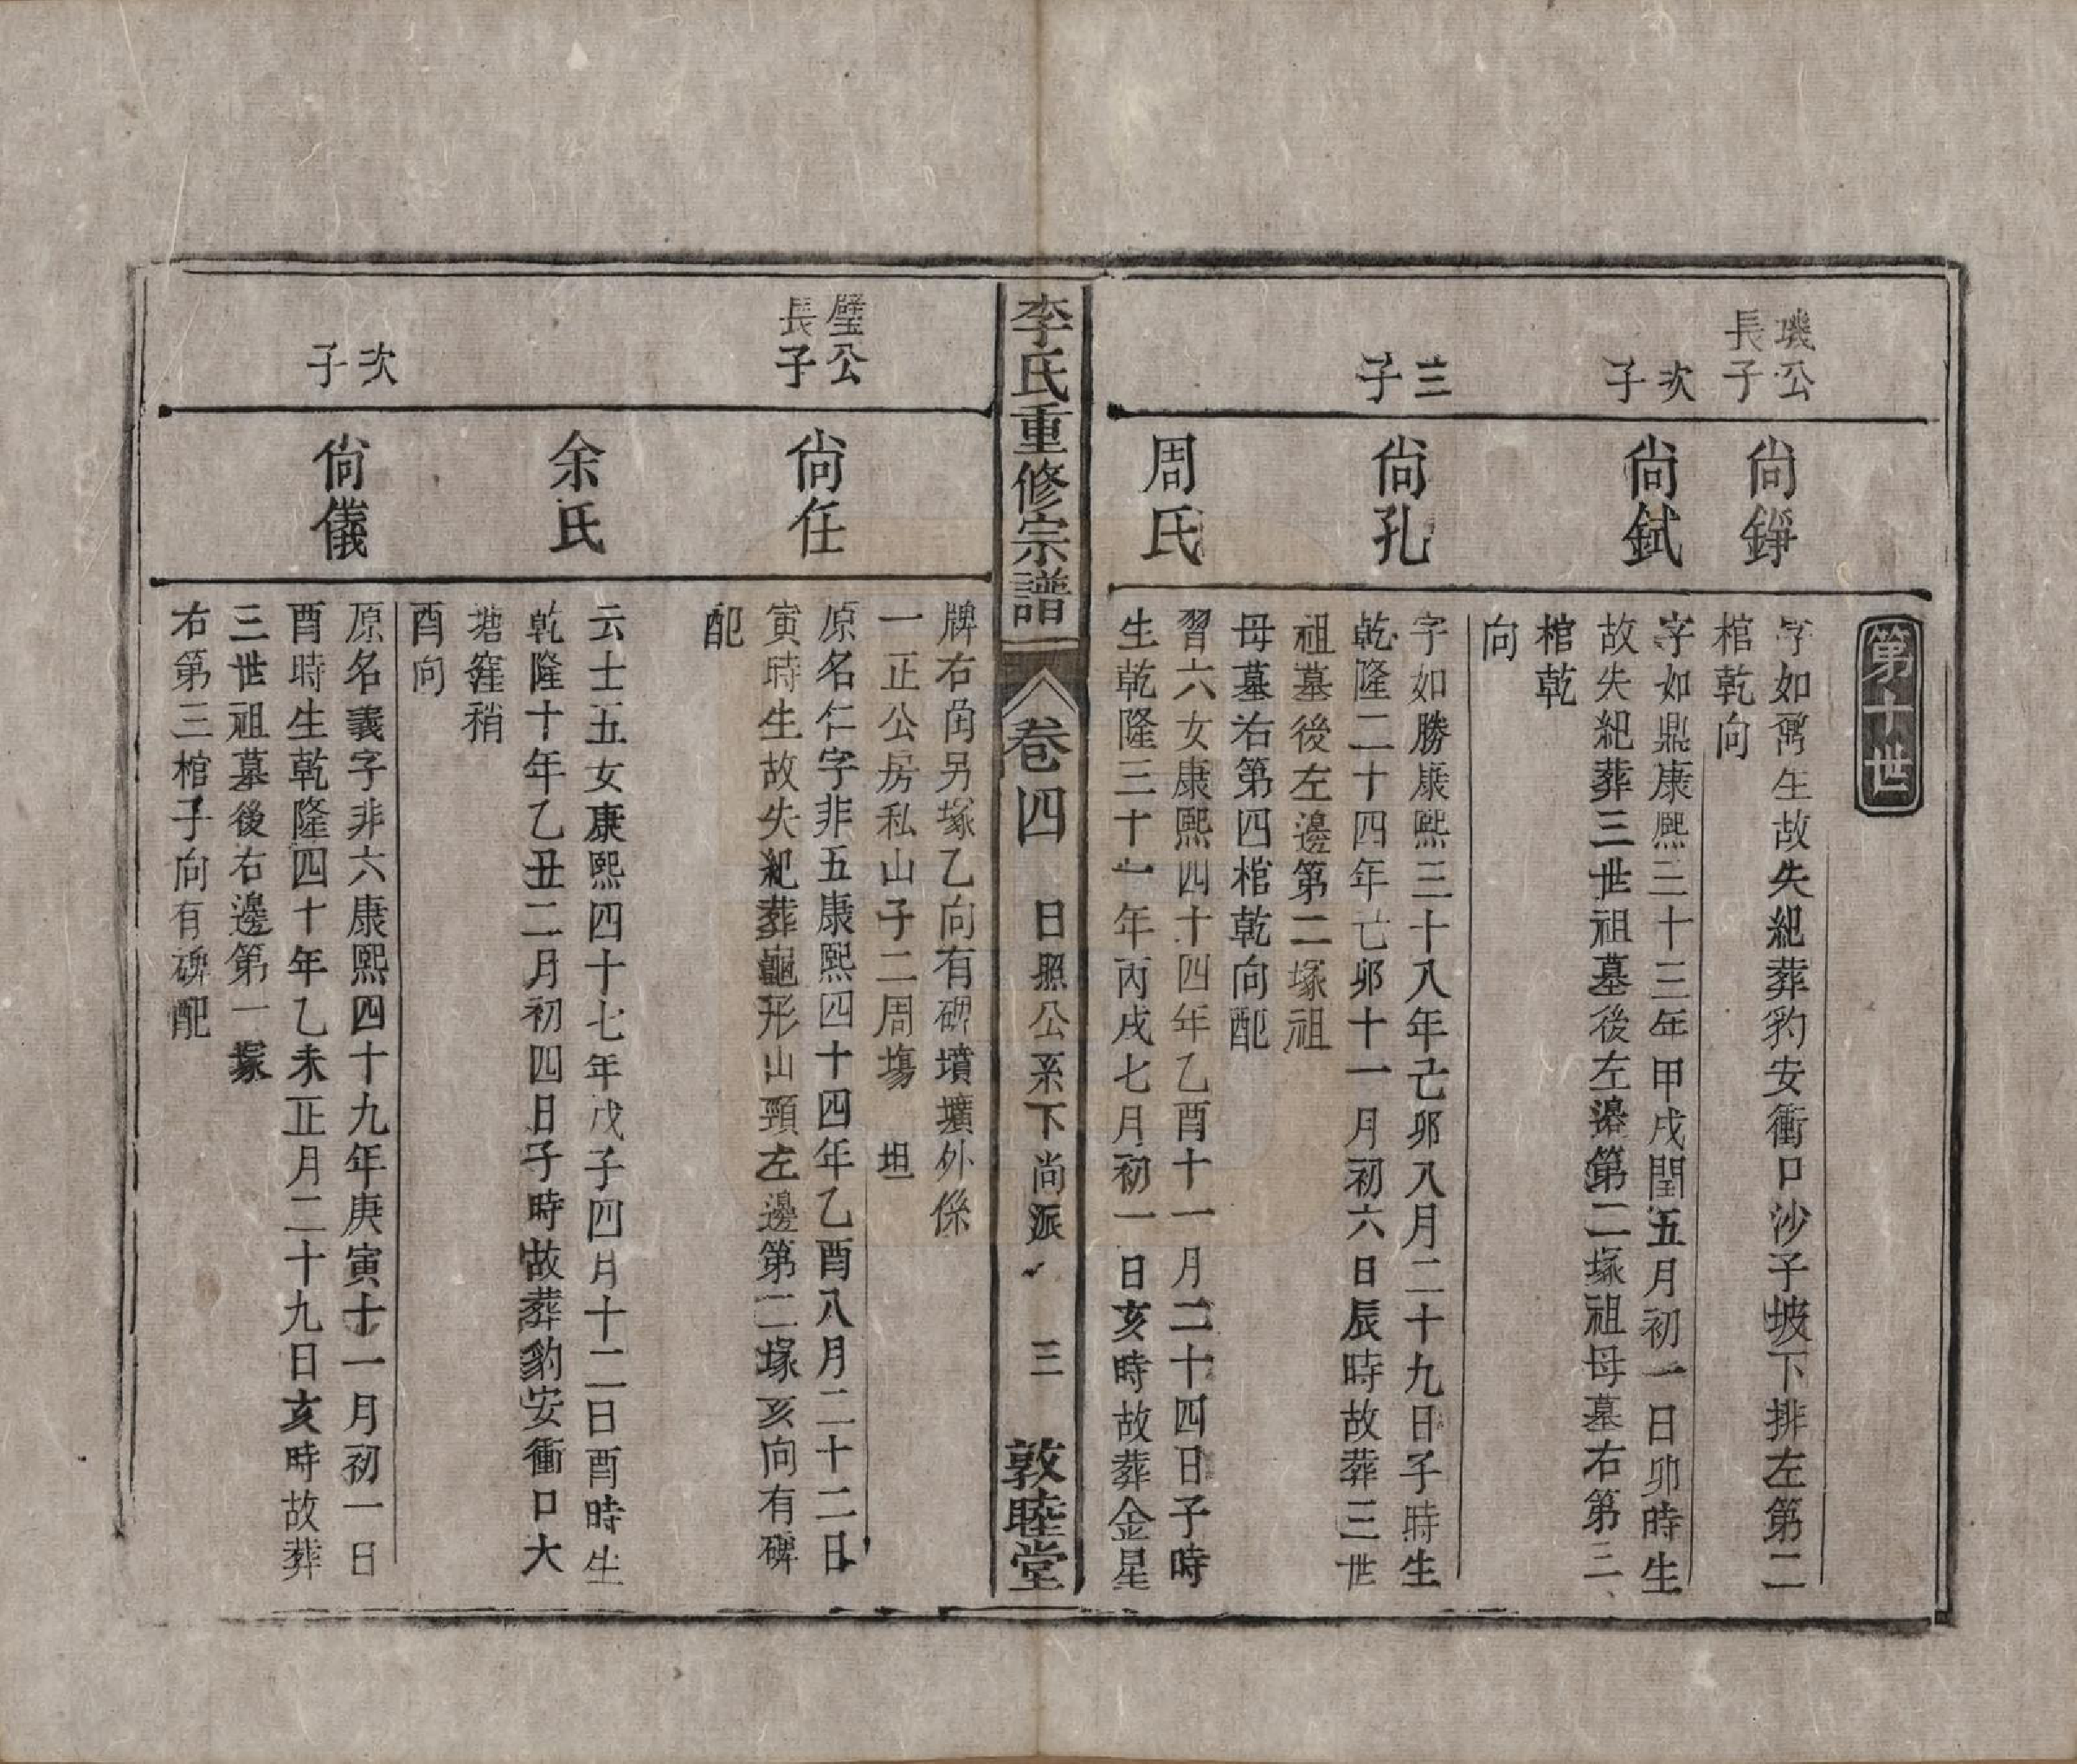 第十世
璣公
長子
尚錚
字如鼐生故失紀葬豹安衝口沙子坡下排左第二
棺乾向
次
子
尚鉽
字如鼎康熙三十三年甲戌閏五月初一日卯時生
故失紀葬三世祖墓後左邊第二塚祖母墓右第三
棺乾
向
三
子
尚孔
字如勝康熙三十八年己卯八月二十九日子時生
乾隆二十四年己卯十一月初六日辰時故葬三世
祖墓後左邊第二塚祖
母墓右第四棺乾向配
周氏
習六女康熙四十四年乙酉十一月二十四日子時
生乾隆三十一年丙戌七月初一日亥時故葬金星
李氏重修宗譜
卷四 日照公系下尚派 三 敦睦堂
牌右角另塚乙向有碑墳壙外係
一正公房私山子二周塲 坦
璧公
長子
尚任
原名仁字非五康熙四十四年乙酉八月二十二日
寅時生故失紀葬龜形山頸左邊第二塚亥向有碑
配
余氏
云士五女康熙四十七年戊子四月十二日酉時生
乾隆十年乙丑二月初四日子時故葬豹安衝口大
塘窪稍
酉向
次
子
尚儀
原名義字非六康熙四十九年庚寅十一月初一日
酉時生乾隆四十年乙未正月二十九日亥時故葬
三世祖墓後右邊第一塚
右第三棺子向有碑配